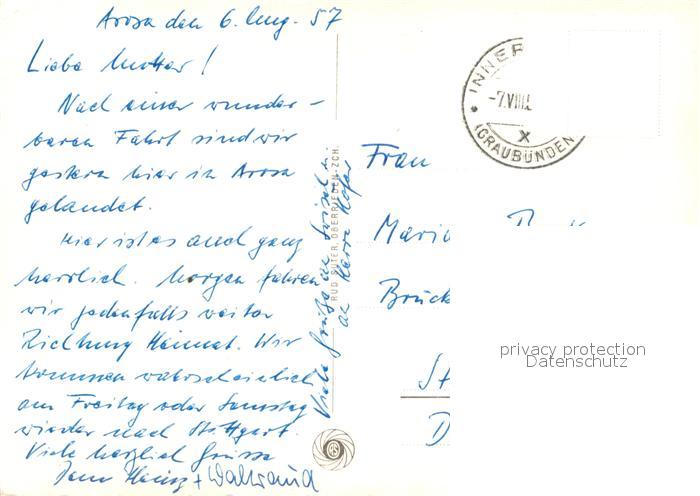 Arosa den 6. Aug. 57
Liebe Mutter!
Nach einer wunder-
baren Fahrt sind wir
gestern hier in Arosa
gelandet.
Hier ist es auch ganz
herrlich. Morgen fahren
wir jedenfalls weiter
Richtung Heimat. Wir
kommen wahrscheinlich
am Freitag oder Samstag
wieder nach Stuttgart.
Viele herzlich Grüsse
Dein Heinz + Waltraud
Viele Grüße an
an Herrn
RUD. SUTER, OBERRIEDEN-ZCH.
INNER
-7.VIII.
(GRAUBÜNDEN
Frau
Maria
Brück
St
D
privacy protection
Datenschutz